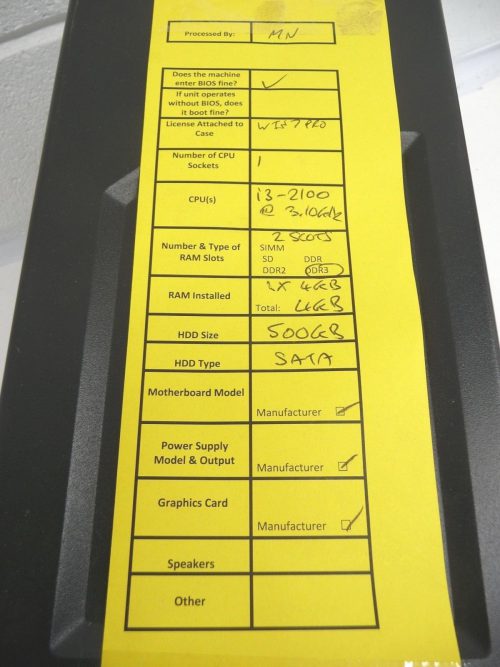 Processed By: MN
Does the machine
enter BIOS fine? ✓
If unit operates
without BIOS, does
it boot fine?
License Attached to
Case
WIN 7 PRO
Number of CPU
Sockets
1
CPU(s)
i3-2100
@ 3.10GHz
Number & Type of
RAM Slots
2 SLOTS
SIMM
SD DDR
DDR2 DDR3
RAM Installed
1X 4GB
Total: 4GB
HDD Size 500GB
HDD Type SATA
Motherboard Model
Manufacturer
Power Supply
Model & Output
Manufacturer
Graphics Card
Manufacturer
Speakers
Other